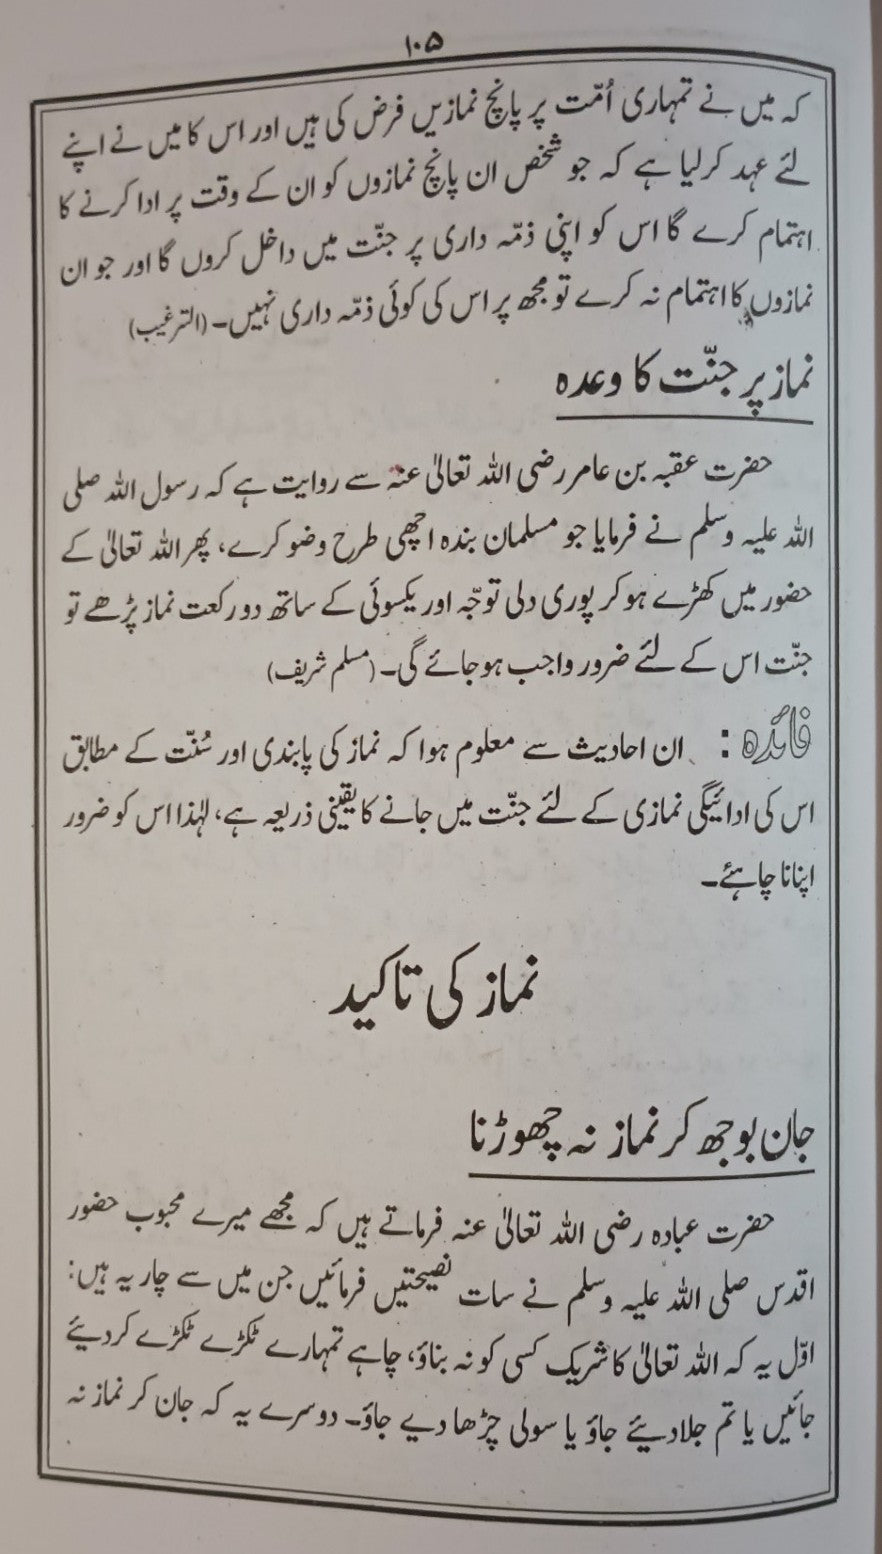 ۱۰۵
کہ میں نے تمہاری اُمّت پر پانچ نمازیں فرض کی ہیں اور اس کا میں نے اپنے
لئے عہد کرلیا ہے کہ جو شخص ان پانچ نمازوں کو ان کے وقت پر ادا کرنے کا
اہتمام کرے گا اس کو اپنی ذمّہ داری پر جنّت میں داخل کروں گا اور جو ان
نمازوں کا اہتمام نہ کرے تو مجھ پر اس کی کوئی ذمّہ داری نہیں۔ (الترغیب)
نماز پر جنّت کا وعدہ
حضرت عقبہ بن عامر رضی اللہ تعالیٰ عنہ سے روایت ہے کہ رسول اللہ صلی
اللہ علیہ وسلم نے فرمایا جو مسلمان بندہ اچھی طرح وضو کرے، پھر اللہ تعالیٰ کے
حضور میں کھڑے ہوکر پوری دلی توجّہ اور یکسوئی کے ساتھ دو رکعت نماز پڑھے تو
جنّت اس کے لئے ضرور واجب ہوجائے گی۔ (مسلم شریف)
فائدہ : ان احادیث سے معلوم ہوا کہ نماز کی پابندی اور سُنّت کے مطابق
اس کی ادائیگی نمازی کے لئے جنّت میں جانے کا یقینی ذریعہ ہے، لہٰذا اس کو ضرور
اپنانا چاہئے۔
نماز کی تاکید
جان بوجھ کر نماز نہ چھوڑنا
حضرت عبادہ رضی اللہ تعالیٰ عنہ فرماتے ہیں کہ مجھے میرے محبوب حضور
اقدس صلی اللہ علیہ وسلم نے سات نصیحتیں فرمائیں جن میں سے چار یہ ہیں:
اوّل یہ کہ اللہ تعالیٰ کا شریک کسی کو نہ بناؤ، چاہے تمہارے ٹکڑے ٹکڑے کردیئے
جائیں یا تم جلا دیئے جاؤ یا سولی چڑھا دیے جاؤ۔ دوسرے یہ کہ جان کر نماز نہ